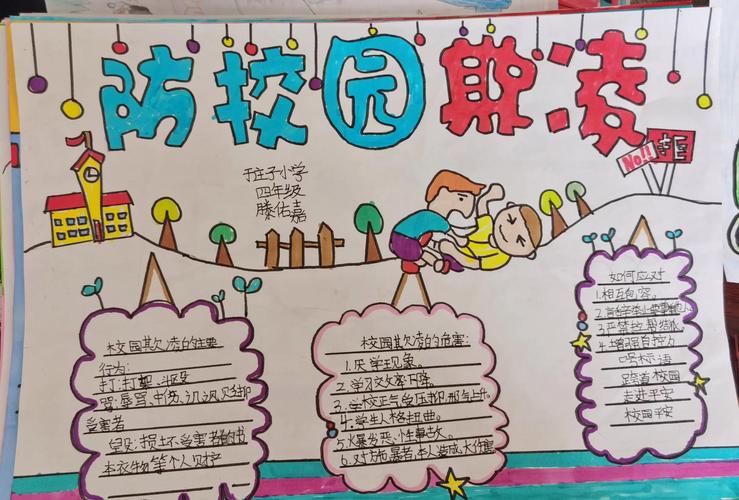 防校园欺凌
于庄子小学
四年级
滕佑嘉
No!!
校园欺凌的主要
行为:
打:打架、斗殴
骂:辱骂、中伤、讥讽、贬抑
受害者
毁:损坏受害者的书
本衣物等个人财产
校园欺凌的危害:
1.厌学现象。
2.学习效率下降。
3.学校正气的压抑邪气上升。
4.学生人格扭曲。
5.火暴发恶性事故。
6.对施暴者本人造成大伤害
如何应对
1.相互包容。
3.严禁拉帮结派
4.增强自控力
喝标语
踏着校园
走进平安
校园平安